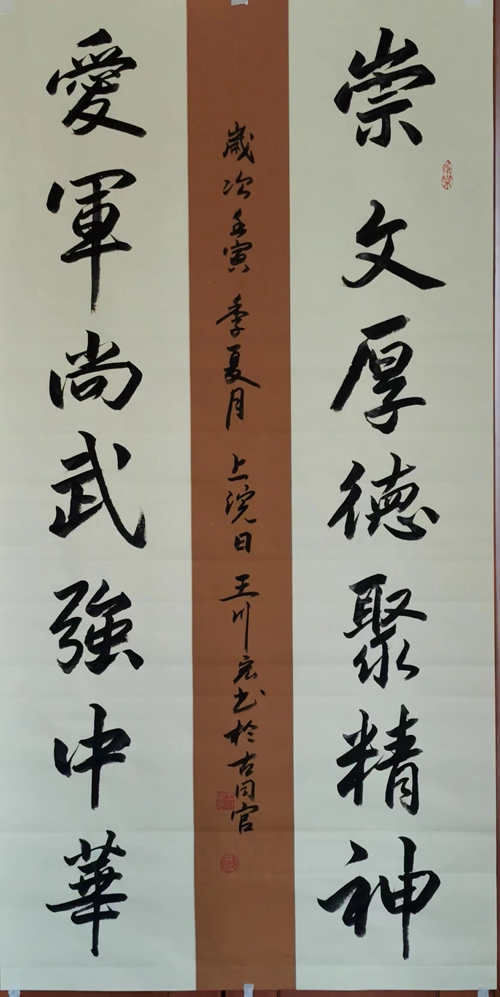 崇文厚德聚精神
歲次壬寅季夏月上浣日王川宏书於古同官
愛軍尚武強中華